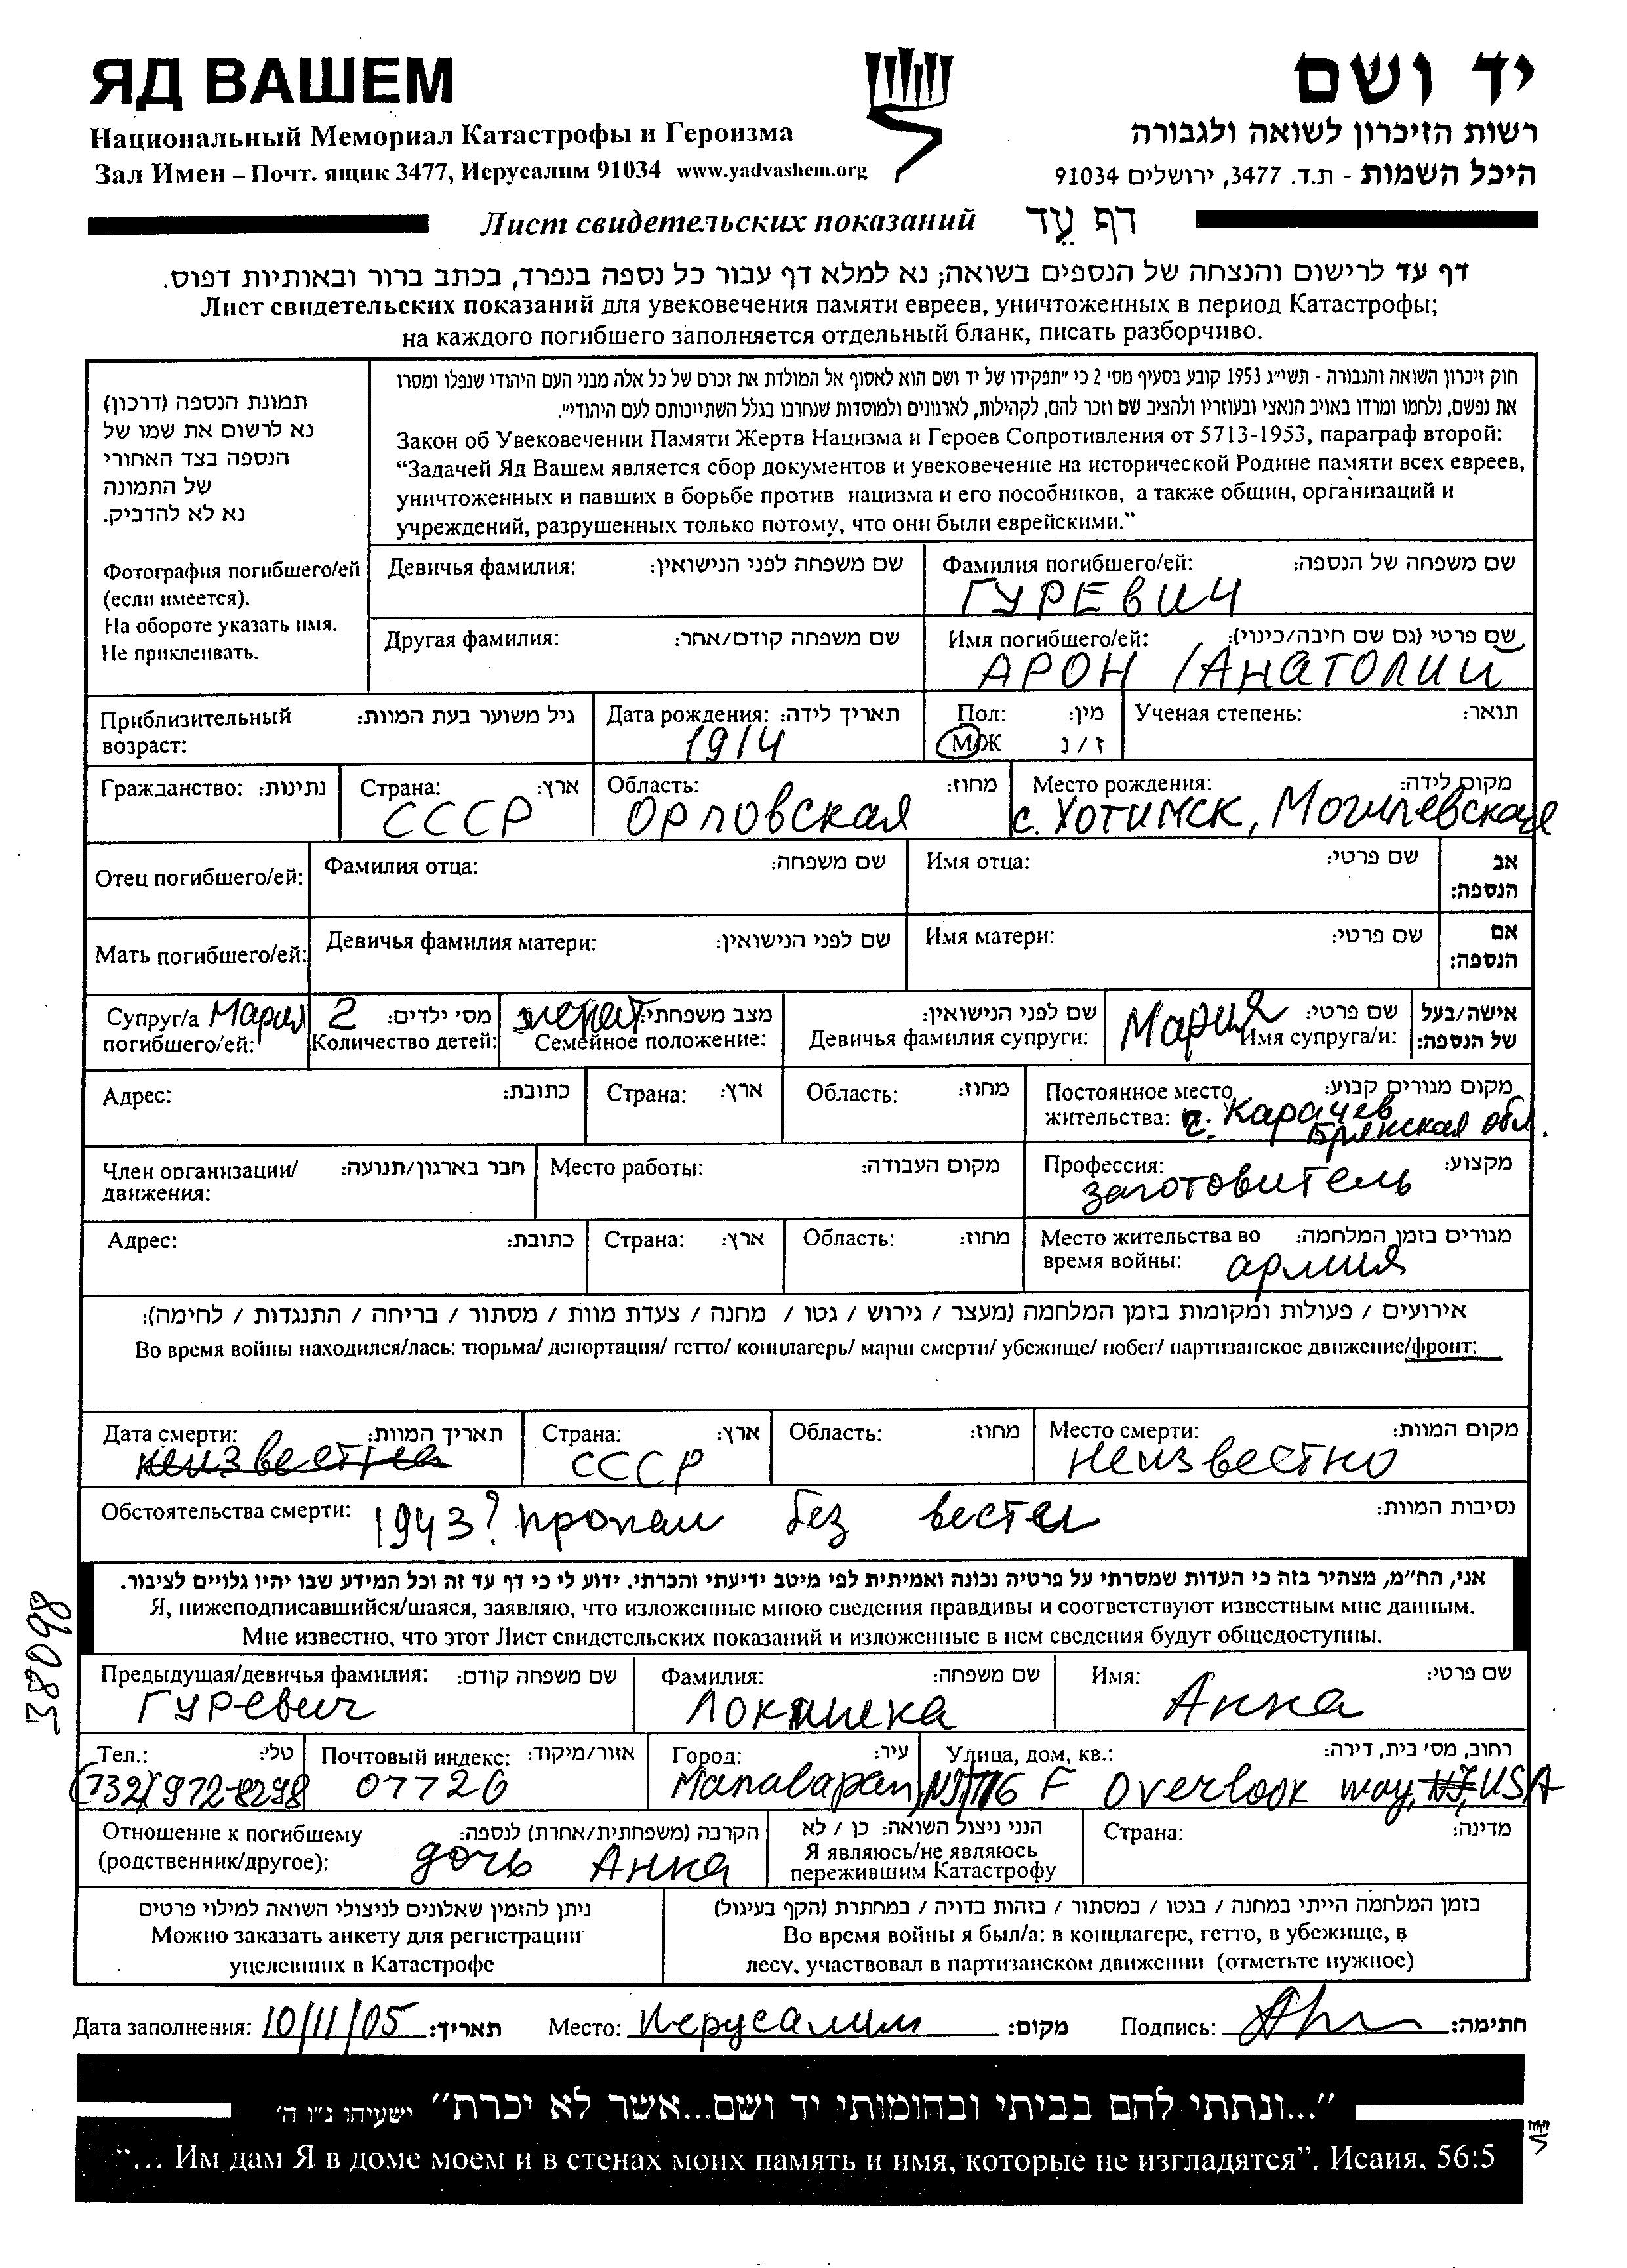 ЯД ВАШЕМ
יד ושם
Национальный Мемориал Катастрофы и Героизма
רשות הזיכרון לשואה ולגבורה
Зал Имен – Почт. ящик 3477, Иерусалим 91034 www.yadvashem.org
היכל השמות - ת.ד. 3477, ירושלים 91034
Лист свидетельских показаний דף עֵד
דף עד לרישום והנצחה של הנספים בשואה; נא למלא דף עבור כל נספה בנפרד, בכתב ברור ובאותיות דפוס.
Лист свидетельских показаний для увековечения памяти евреев, уничтоженных в период Катастрофы;
на каждого погибшего заполняется отдельный бланк, писать разборчиво.
תמונת הנספה (דרכון)
נא לרשום את שמו של
הנספה בצד האחורי
של התמונה
נא לא להדביק.
Фотография погибшего/ей
(если имеется).
На обороте указать имя.
Не приклеивать.
חוק זיכרון השואה והגבורה - תשי״ג 1953 קובע בסעיף מס׳ 2 כי ״תפקידו של יד ושם הוא לאסוף אל המולדת את זכרם של כל אלה מבני העם היהודי שנפלו ומסרו
את נפשם, נלחמו ומרדו באויב הנאצי ובעוזריו ולהציב שם וזכר להם, לקהילות, לארגונים ולמוסדות שנחרבו בגלל השתייכותם לעם היהודי״.
Закон об Увековечении Памяти Жертв Нацизма и Героев Сопротивления от 5713-1953, параграф второй:
“Задачей Яд Вашем является сбор документов и увековечение на исторической Родине памяти всех евреев,
уничтоженных и павших в борьбе против нацизма и его пособников, а также общин, организаций и
учреждений, разрушенных только потому, что они были еврейскими.”
Девичья фамилия: שם משפחה לפני הנישואין:
Фамилия погибшего/ей: שם משפחה של הנספה:
ГУРЕВИЧ
Другая фамилия: שם משפחה קודם/אחר:
Имя погибшего/ей: שם פרטי (גם שם חיבה/כינוי):
АРОН /АНАТОЛИЙ
Приблизительный возраст: גיל משוער בעת המוות:
Дата рождения: תאריך לידה:
1914
Пол: מין:
М/Ж ז / נ
Ученая степень: תואר:
Гражданство: נתינות:
Страна: ארץ:
СССР
Область: מחוז:
Орловская
Место рождения: מקום לידה:
с. Хотимск, Могилевская
Отец погибшего/ей: Фамилия отца: שם משפחה:
Имя отца: שם פרטי:
אב הנספה:
Мать погибшего/ей: Девичья фамилия матери: שם לפני הנישואין:
Имя матери: שם פרטי:
אם הנספה:
Супруг/а погибшего/ей: Мария
2 מס׳ ילדים:
Количество детей:
женат מצב משפחתי:
Семейное положение:
שם לפני הנישואין:
Девичья фамилия супруги:
Мария שם פרטי:
Имя супруга/и:
אישה/בעל של הנספה:
Адрес: כתובת:
Страна: ארץ:
Область: מחוז:
Постоянное место жительства: מקום מגורים קבוע:
г. Карачев
Брянская обл.
Член организации/движения: חבר בארגון/תנועה:
Место работы: מקום העבודה:
Профессия: מקצוע:
заготовитель
Адрес: כתובת:
Страна: ארץ:
Область: מחוז:
Место жительства во время войны: מגורים בזמן המלחמה:
армия
אירועים / פעולות ומקומות בזמן המלחמה (מעצר / גירוש / גטו / מחנה / צעדת מוות / מסתור / בריחה / התנגדות / לחימה):
Во время войны находился/лась: тюрьма/ депортация/ гетто/ концлагерь/ марш смерти/ убежище/ побег/ партизанское движение/фронт:
Дата смерти: תאריך המוות:
неизвестна
Страна: ארץ:
СССР
Область: מחוז:
Место смерти: מקום המוות:
неизвестно
Обстоятельства смерти: 1943? пропал без вести נסיבות המוות:
אני, הח״מ, מצהיר בזה כי העדות שמסרתי על פרטיה נכונה ואמיתית לפי מיטב ידיעתי והכרתי. ידוע לי כי דף עד זה וכל המידע שבו יהיו גלויים לציבור.
Я, нижеподписавшийся/шаяся, заявляю, что изложенные мною сведения правдивы и соответствуют известным мне данным.
Мне известно, что этот Лист свидетельских показаний и изложенные в нем сведения будут общедоступны.
38098
Предыдущая/девичья фамилия: שם משפחה קודם:
Гуревич
Фамилия: שם משפחה:
Локшика
Имя: שם פרטי:
Анна
Тел.: טל׳:
(732) 972-8298
Почтовый индекс: אזור/מיקוד:
07726
Город: עיר:
Manalapan, NJ
Улица, дом, кв.: רחוב, מס׳ בית, דירה:
116 F Overlook way, NJ, USA
Отношение к погибшему (родственник/другое): הקרבה (משפחתית/אחרת) לנספה:
дочь Анна
הנני ניצול השואה: כן / לא
Я являюсь/не являюсь
пережившим Катастрофу
Страна: מדינה:
ניתן להזמין שאלונים לניצולי השואה למילוי פרטים
Можно заказать анкету для регистрации
уцелевших в Катастрофе
בזמן המלחמה הייתי במחנה / בגטו / במסתור / בזהות בדויה / במחתרת (הקף בעיגול)
Во время войны я был/а: в концлагере, гетто, в убежище, в
лесу, участвовал в партизанском движении (отметьте нужное)
Дата заполнения: 10/11/05 תאריך: Место: Иерусалим מקום: Подпись: חתימה:
״...ונתתי להם בביתי ובחומותי יד ושם...אשר לא יכרת״ ישעיהו נ״ו ה׳
“... Им дам Я в доме моем и в стенах моих память и имя, которые не изгладятся”. Исаия, 56:5